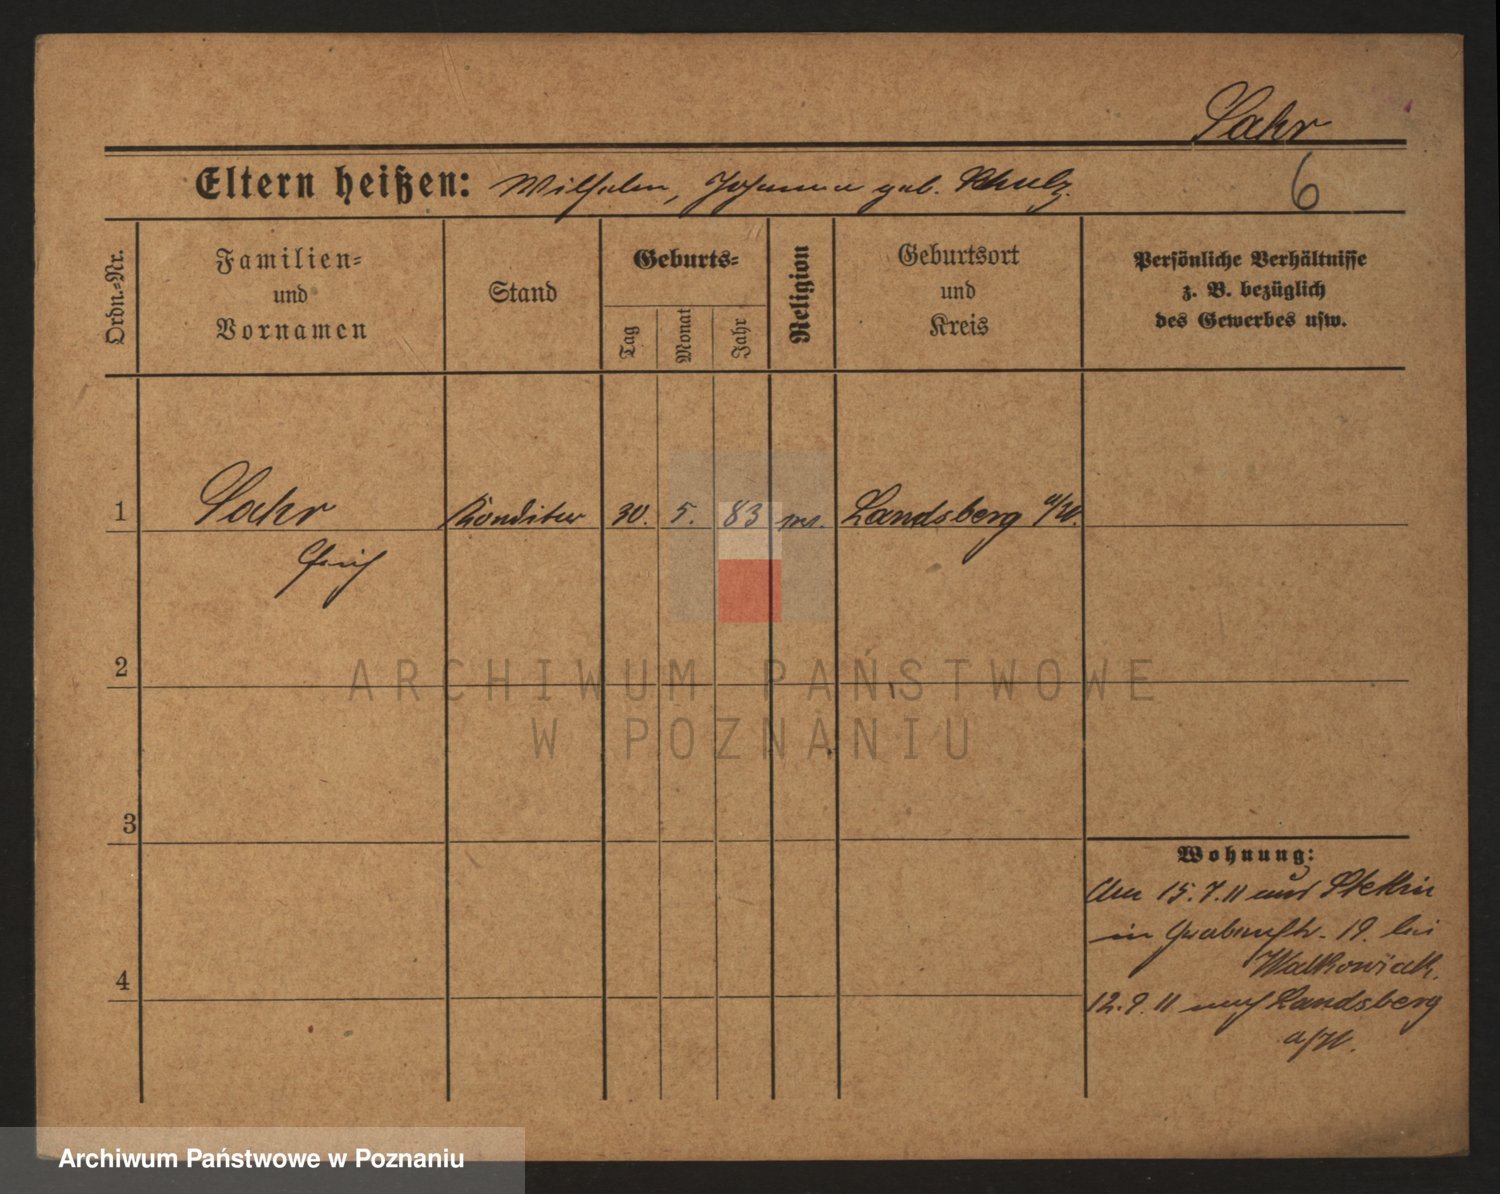 Sahr
Eltern heißen: Wilhelm, Johanna geb. Schulz.
6
Ordn.-Nr.
Familien-
und
Vornamen
Stand
Geburts-
Tag
Monat
Jahr
Religion
Geburtsort
und
Kreis
Persönliche Verhältnisse
z. B. bezüglich
des Gewerbes usw.
1
Sahr
Konditor
30.
5.
83
Landsberg a/W.
Erich
2
ARCHIWUM PAŃSTWOWE
W POZNANIU
3
Wohnung:
Am 15.7.11 aus Stettin
in Grabenstr. 19. bei
Walkowiak.
4
12.9.11 nach Landsberg
a/W.
Archiwum Państwowe w Poznaniu